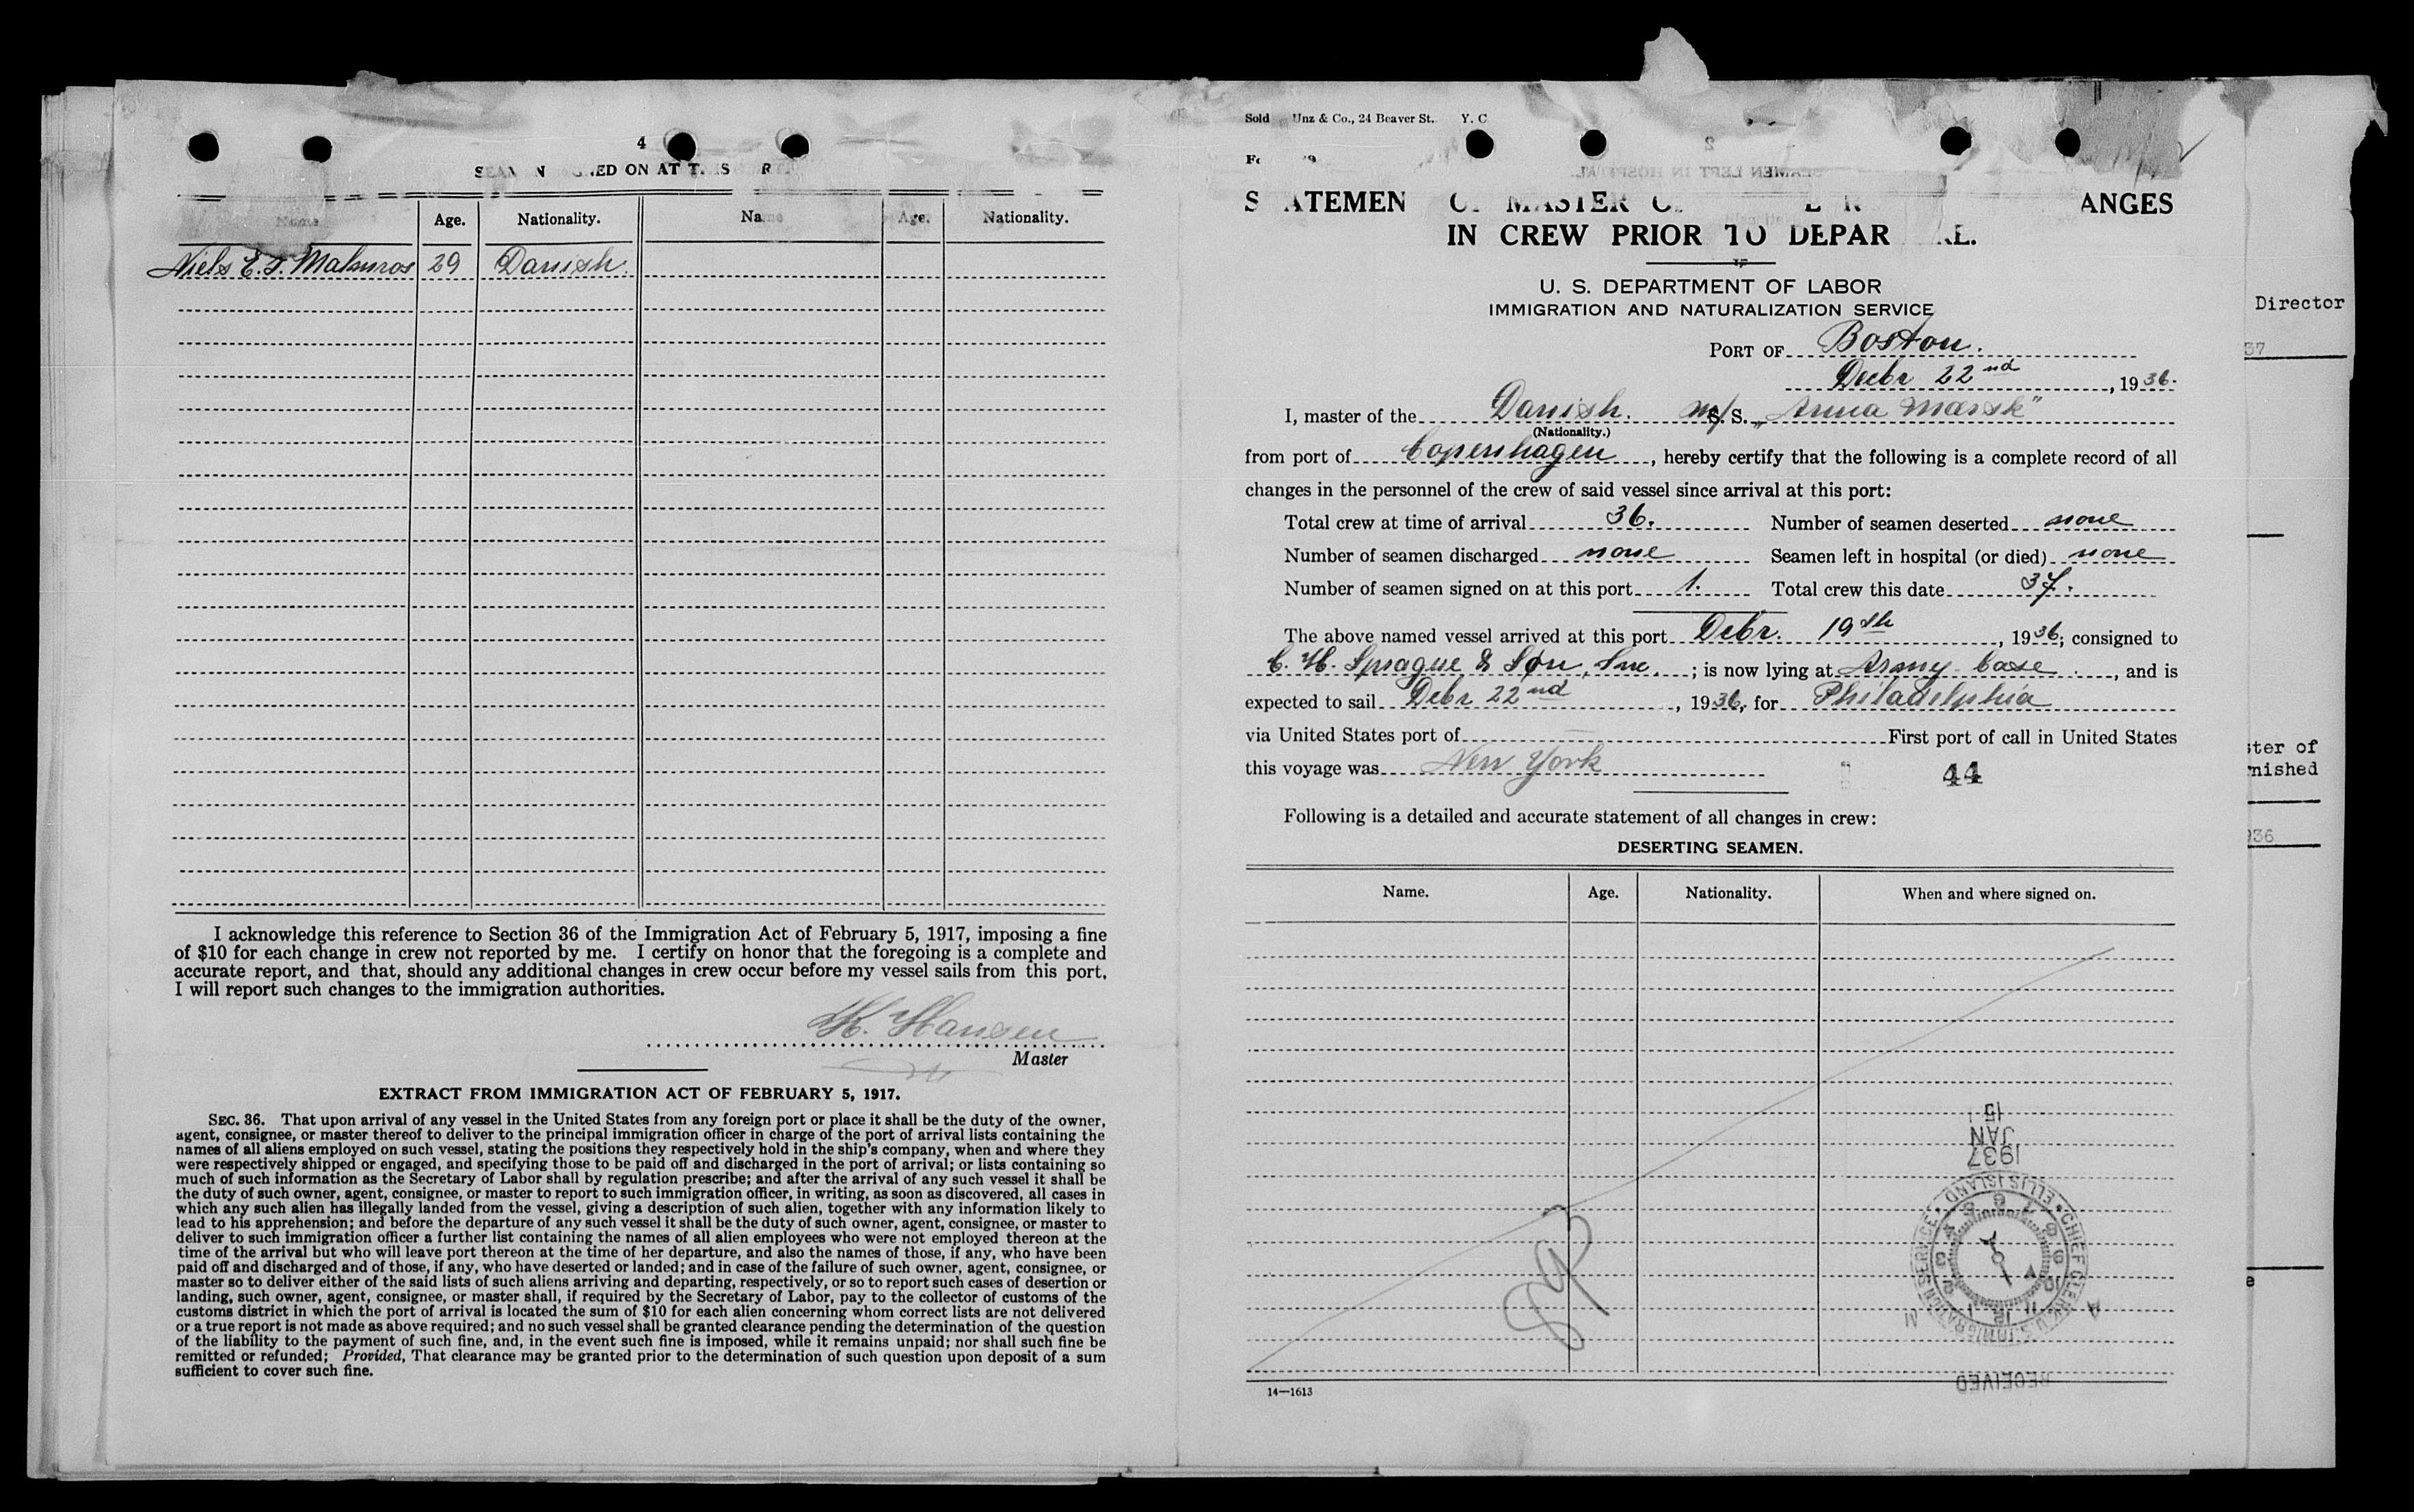 4
SEAMEN SIGNED ON AT THIS PORT.
Name Age. Nationality. Name Age. Nationality.
Niels E. J. 29 Danish.
I acknowledge this reference to Section 36 of the Immigration Act of February 5, 1917, imposing a fine
of $10 for each change in crew not reported by me. I certify on honor that the foregoing is a complete and
accurate report, and that, should any additional changes in crew occur before my vessel sails from this port,
I will report such changes to the immigration authorities.
K. Hansen
Master
EXTRACT FROM IMMIGRATION ACT OF FEBRUARY 5, 1917.
SEC. 36. That upon arrival of any vessel in the United States from any foreign port or place it shall be the duty of the owner,
agent, consignee, or master thereof to deliver to the principal immigration officer in charge of the port of arrival lists containing the
names of all aliens employed on such vessel, stating the positions they respectively hold in the ship's company, when and where they
were respectively shipped or engaged, and specifying those to be paid off and discharged in the port of arrival; or lists containing so
much of such information as the Secretary of Labor shall by regulation prescribe; and after the arrival of any such vessel it shall be
the duty of such owner, agent, consignee, or master to report to such immigration officer, in writing, as soon as discovered, all cases in
which any such alien has illegally landed from the vessel, giving a description of such alien, together with any information likely to
lead to his apprehension; and before the departure of any such vessel it shall be the duty of such owner, agent, consignee, or master to
deliver to such immigration officer a further list containing the names of all alien employees who were not employed thereon at the
time of the arrival but who will leave port thereon at the time of her departure, and also the names of those, if any, who have been
paid off and discharged and of those, if any, who have deserted or landed; and in case of the failure of such owner, agent, consignee, or
master so to deliver either of the said lists of such aliens arriving and departing, respectively, or so to report such cases of desertion or
landing, such owner, agent, consignee, or master shall, if required by the Secretary of Labor, pay to the collector of customs of the
customs district in which the port of arrival is located the sum of $10 for each alien concerning whom correct lists are not delivered
or a true report is not made as above required; and no such vessel shall be granted clearance pending the determination of the question
of the liability to the payment of such fine, and, in the event such fine is imposed, while it remains unpaid; nor shall such fine be
remitted or refunded; Provided, That clearance may be granted prior to the determination of such question upon deposit of a sum
sufficient to cover such fine.
Sold Unz & Co., 24 Beaver St. Y. C
STATEMENT OF MASTER ANGES
IN CREW PRIOR TO DEPARTURE.
U. S. DEPARTMENT OF LABOR
IMMIGRATION AND NATURALIZATION SERVICE
PORT OF Boston.
Decbr 22nd, 1936.
I, master of the Danish. m/S. S. „Anna Mærsk"
(Nationality.)
from port of Copenhagen, hereby certify that the following is a complete record of all
changes in the personnel of the crew of said vessel since arrival at this port:
Total crew at time of arrival 36. Number of seamen deserted none
Number of seamen discharged none Seamen left in hospital (or died) none
Number of seamen signed on at this port 1. Total crew this date 37.
The above named vessel arrived at this port Debr. 19th, 1936; consigned to
C. H. Sprague & Søn, Inc. ; is now lying at Army base, and is
expected to sail Debr 22nd, 1936, for Philadelphia
via United States port of — First port of call in United States
this voyage was New York
44
Following is a detailed and accurate statement of all changes in crew:
DESERTING SEAMEN.
Name. Age. Nationality. When and where signed on.
1937
JAN
15
CHIEF CLERK U.S. IMMIGRATION SERVICE ELLIS ISLAND
RECEIVED
14—1613
Director
37
ster of
nished
936